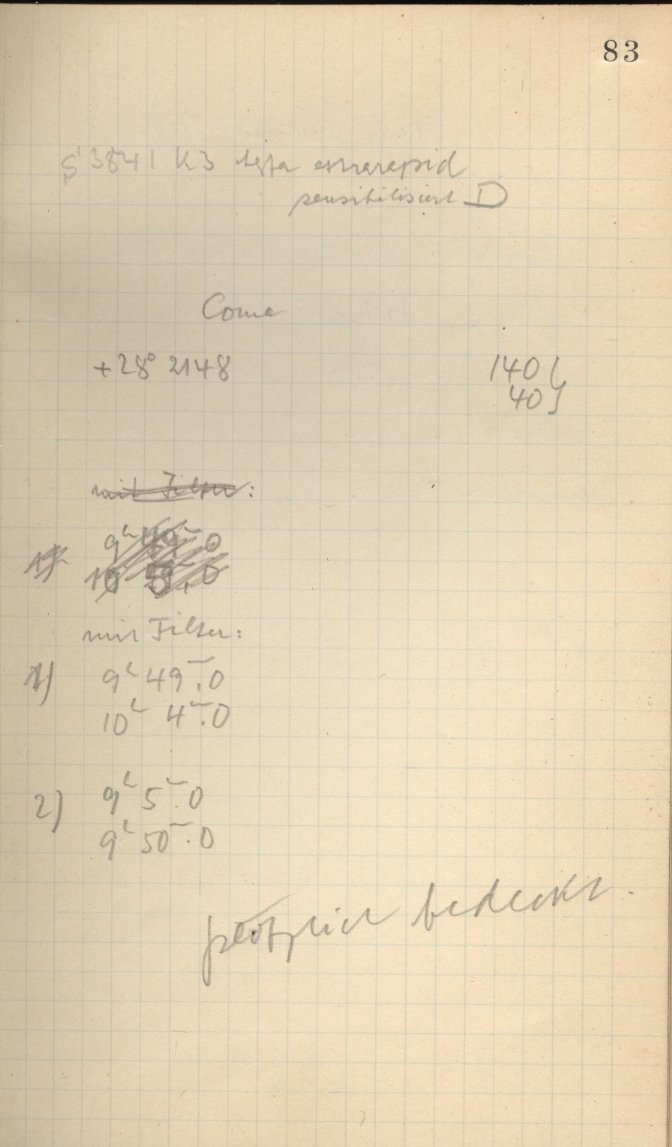 83
S 3841 K3 Agfa extrarapid
sensibilisiert D
Coma
+28° 2148
140 (
40 )
mit Filter:
1) 9ʰ 49ᵐ.0
10
mit Filter:
1) 9ʰ 49ᵐ.0
10ʰ 4ᵐ.0
2) 9ʰ 5ᵐ.0
9ʰ 50ᵐ.0
plötzlich bedeckt.